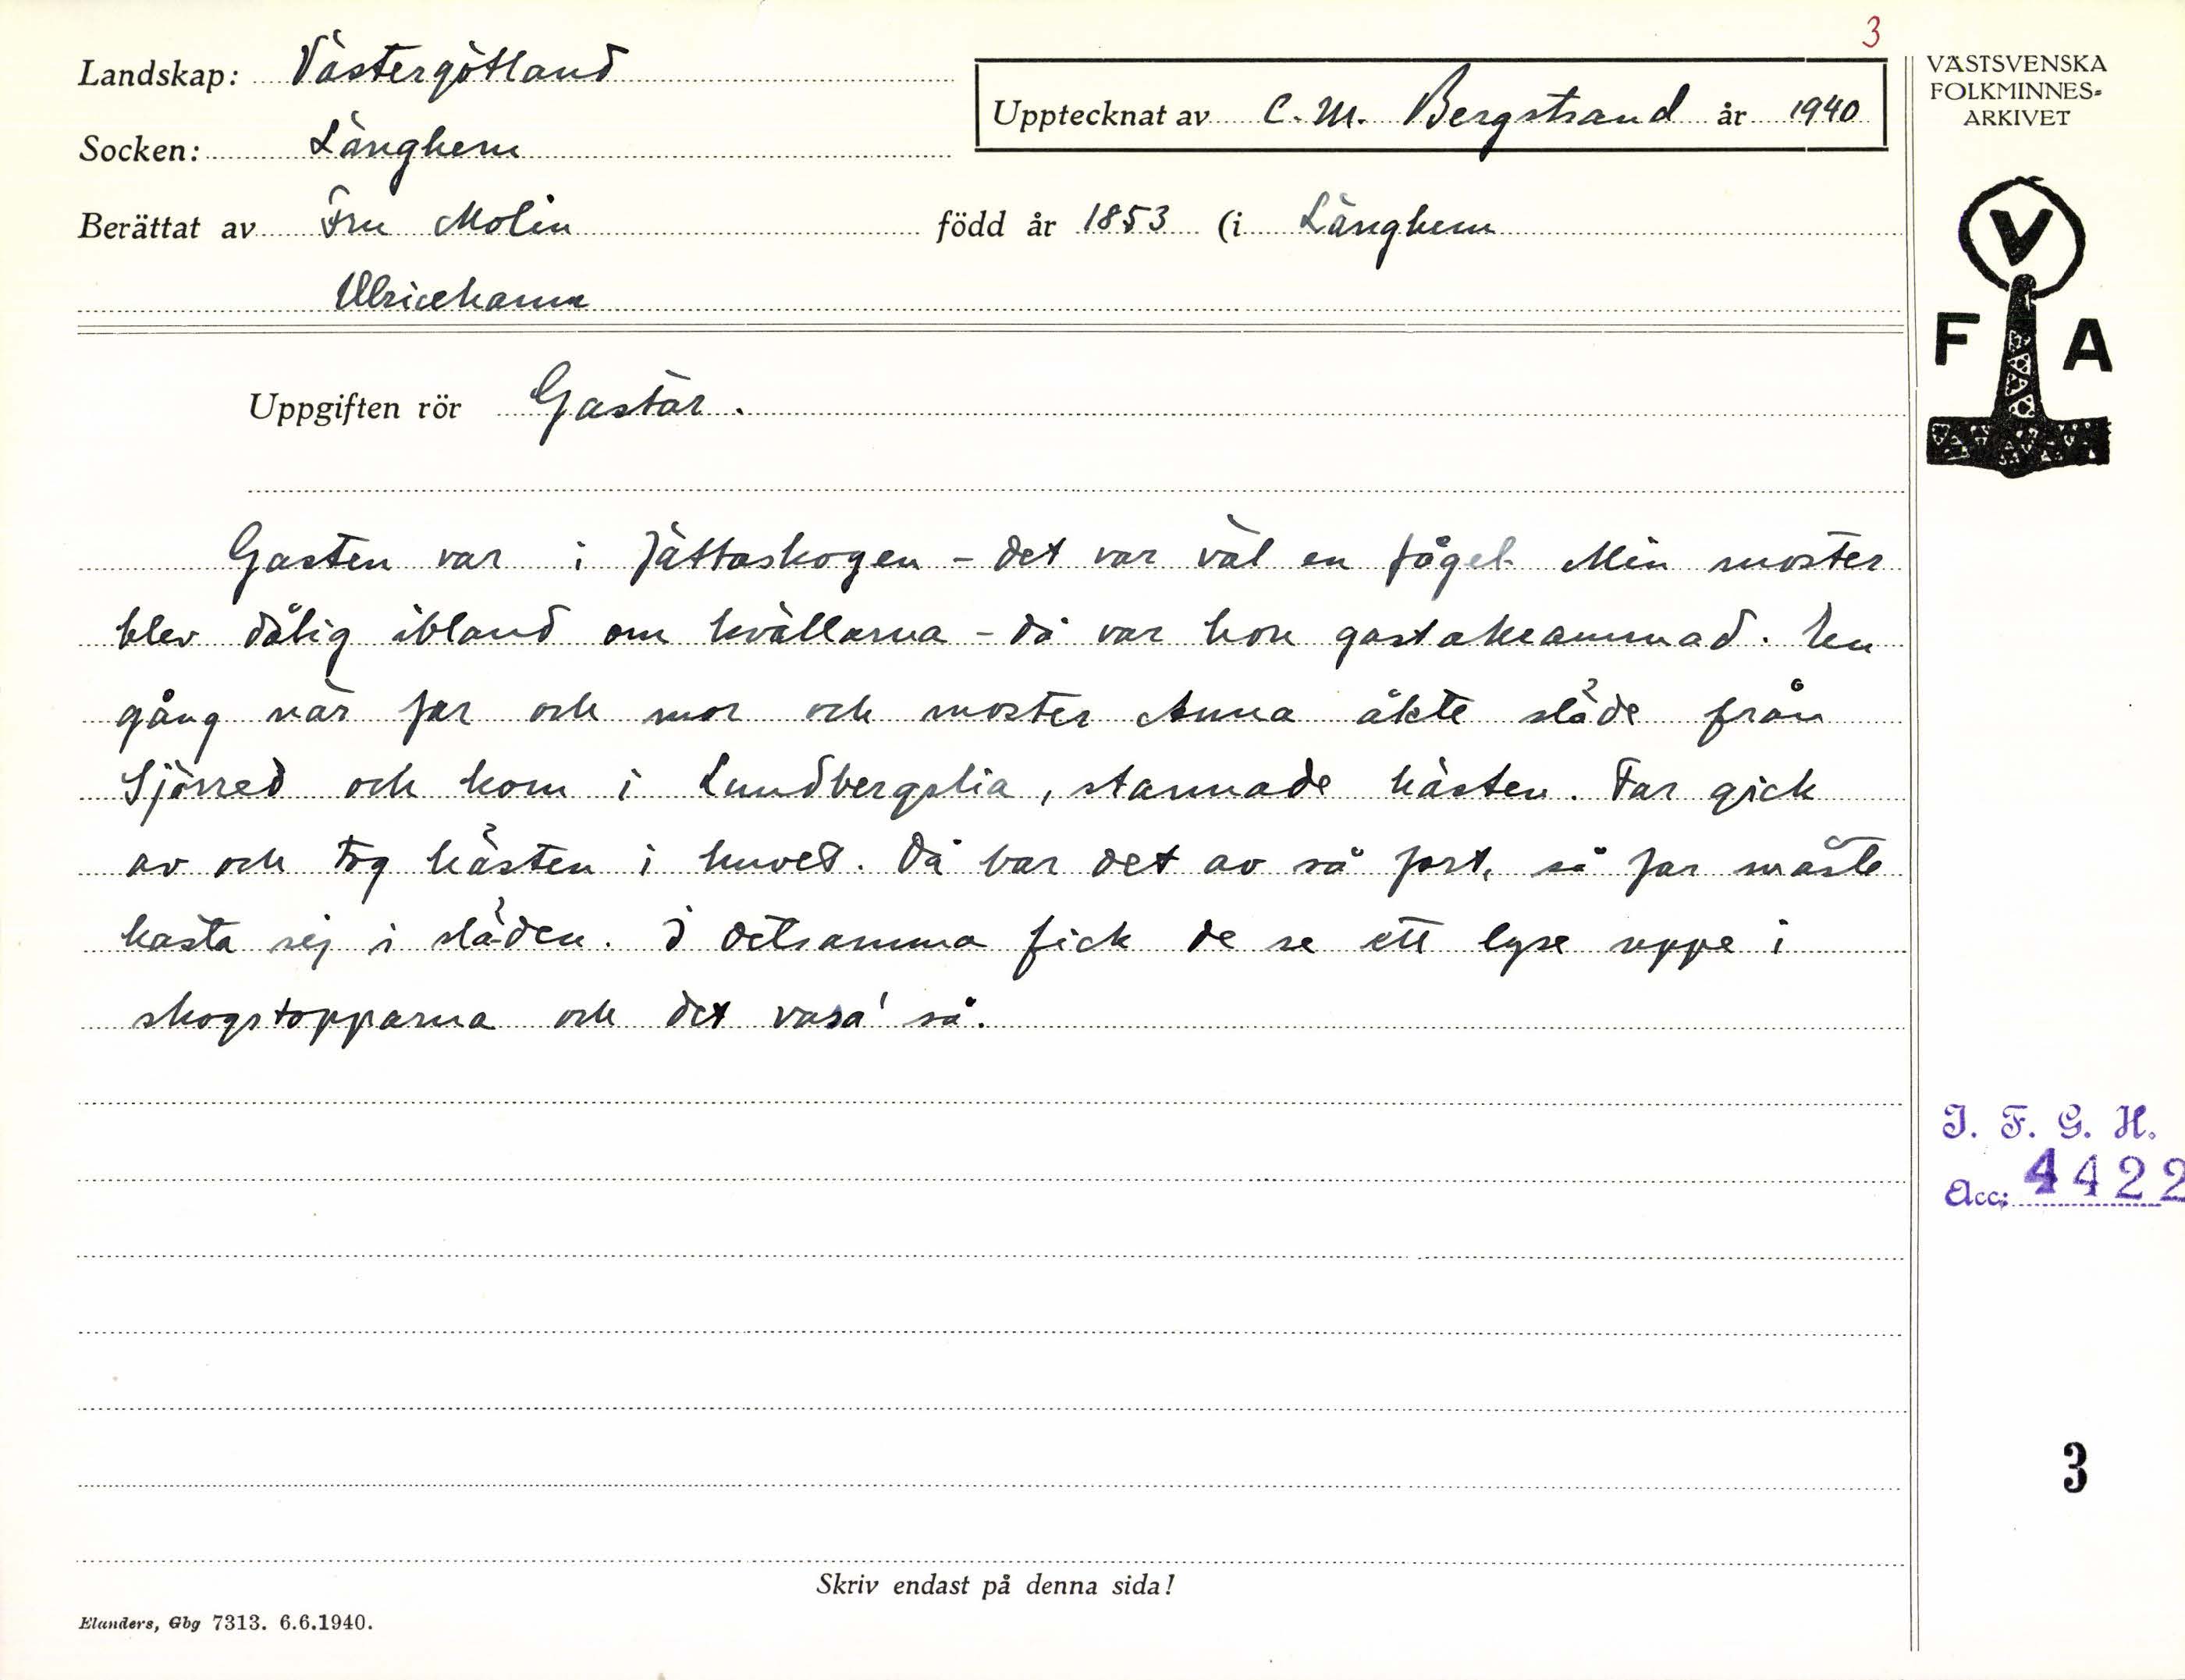 3
Landskap: Västergötland
Upptecknat av C. M. Bergstrand år 1940
VÄSTSVENSKA
FOLKMINNES-
ARKIVET
Socken: Länghem
Berättat av Fru Molin född år 1853 (i Länghem
Ulricehamn
V
F A
Uppgiften rör Gastar.
Gasten var i Jättaskogen - det var väl en fågel. Min moster
blev dålig ibland om kvällarna - då var hon gastakrammad. En
gång när far och mor och moster Anna åkte släde från
Sjörred och kom i Lundbergslia, stannade hästen. Far gick
av och tog hästen i huvet. Då bar det av så fort, så far måste
kasta sej i släden. I detsamma fick de se ett lyse uppe i
skogstopparna och det vasa' så.
I. F. G. H.
Acc: 4422
3
Skriv endast på denna sida!
Elanders, Gbg 7313. 6.6.1940.